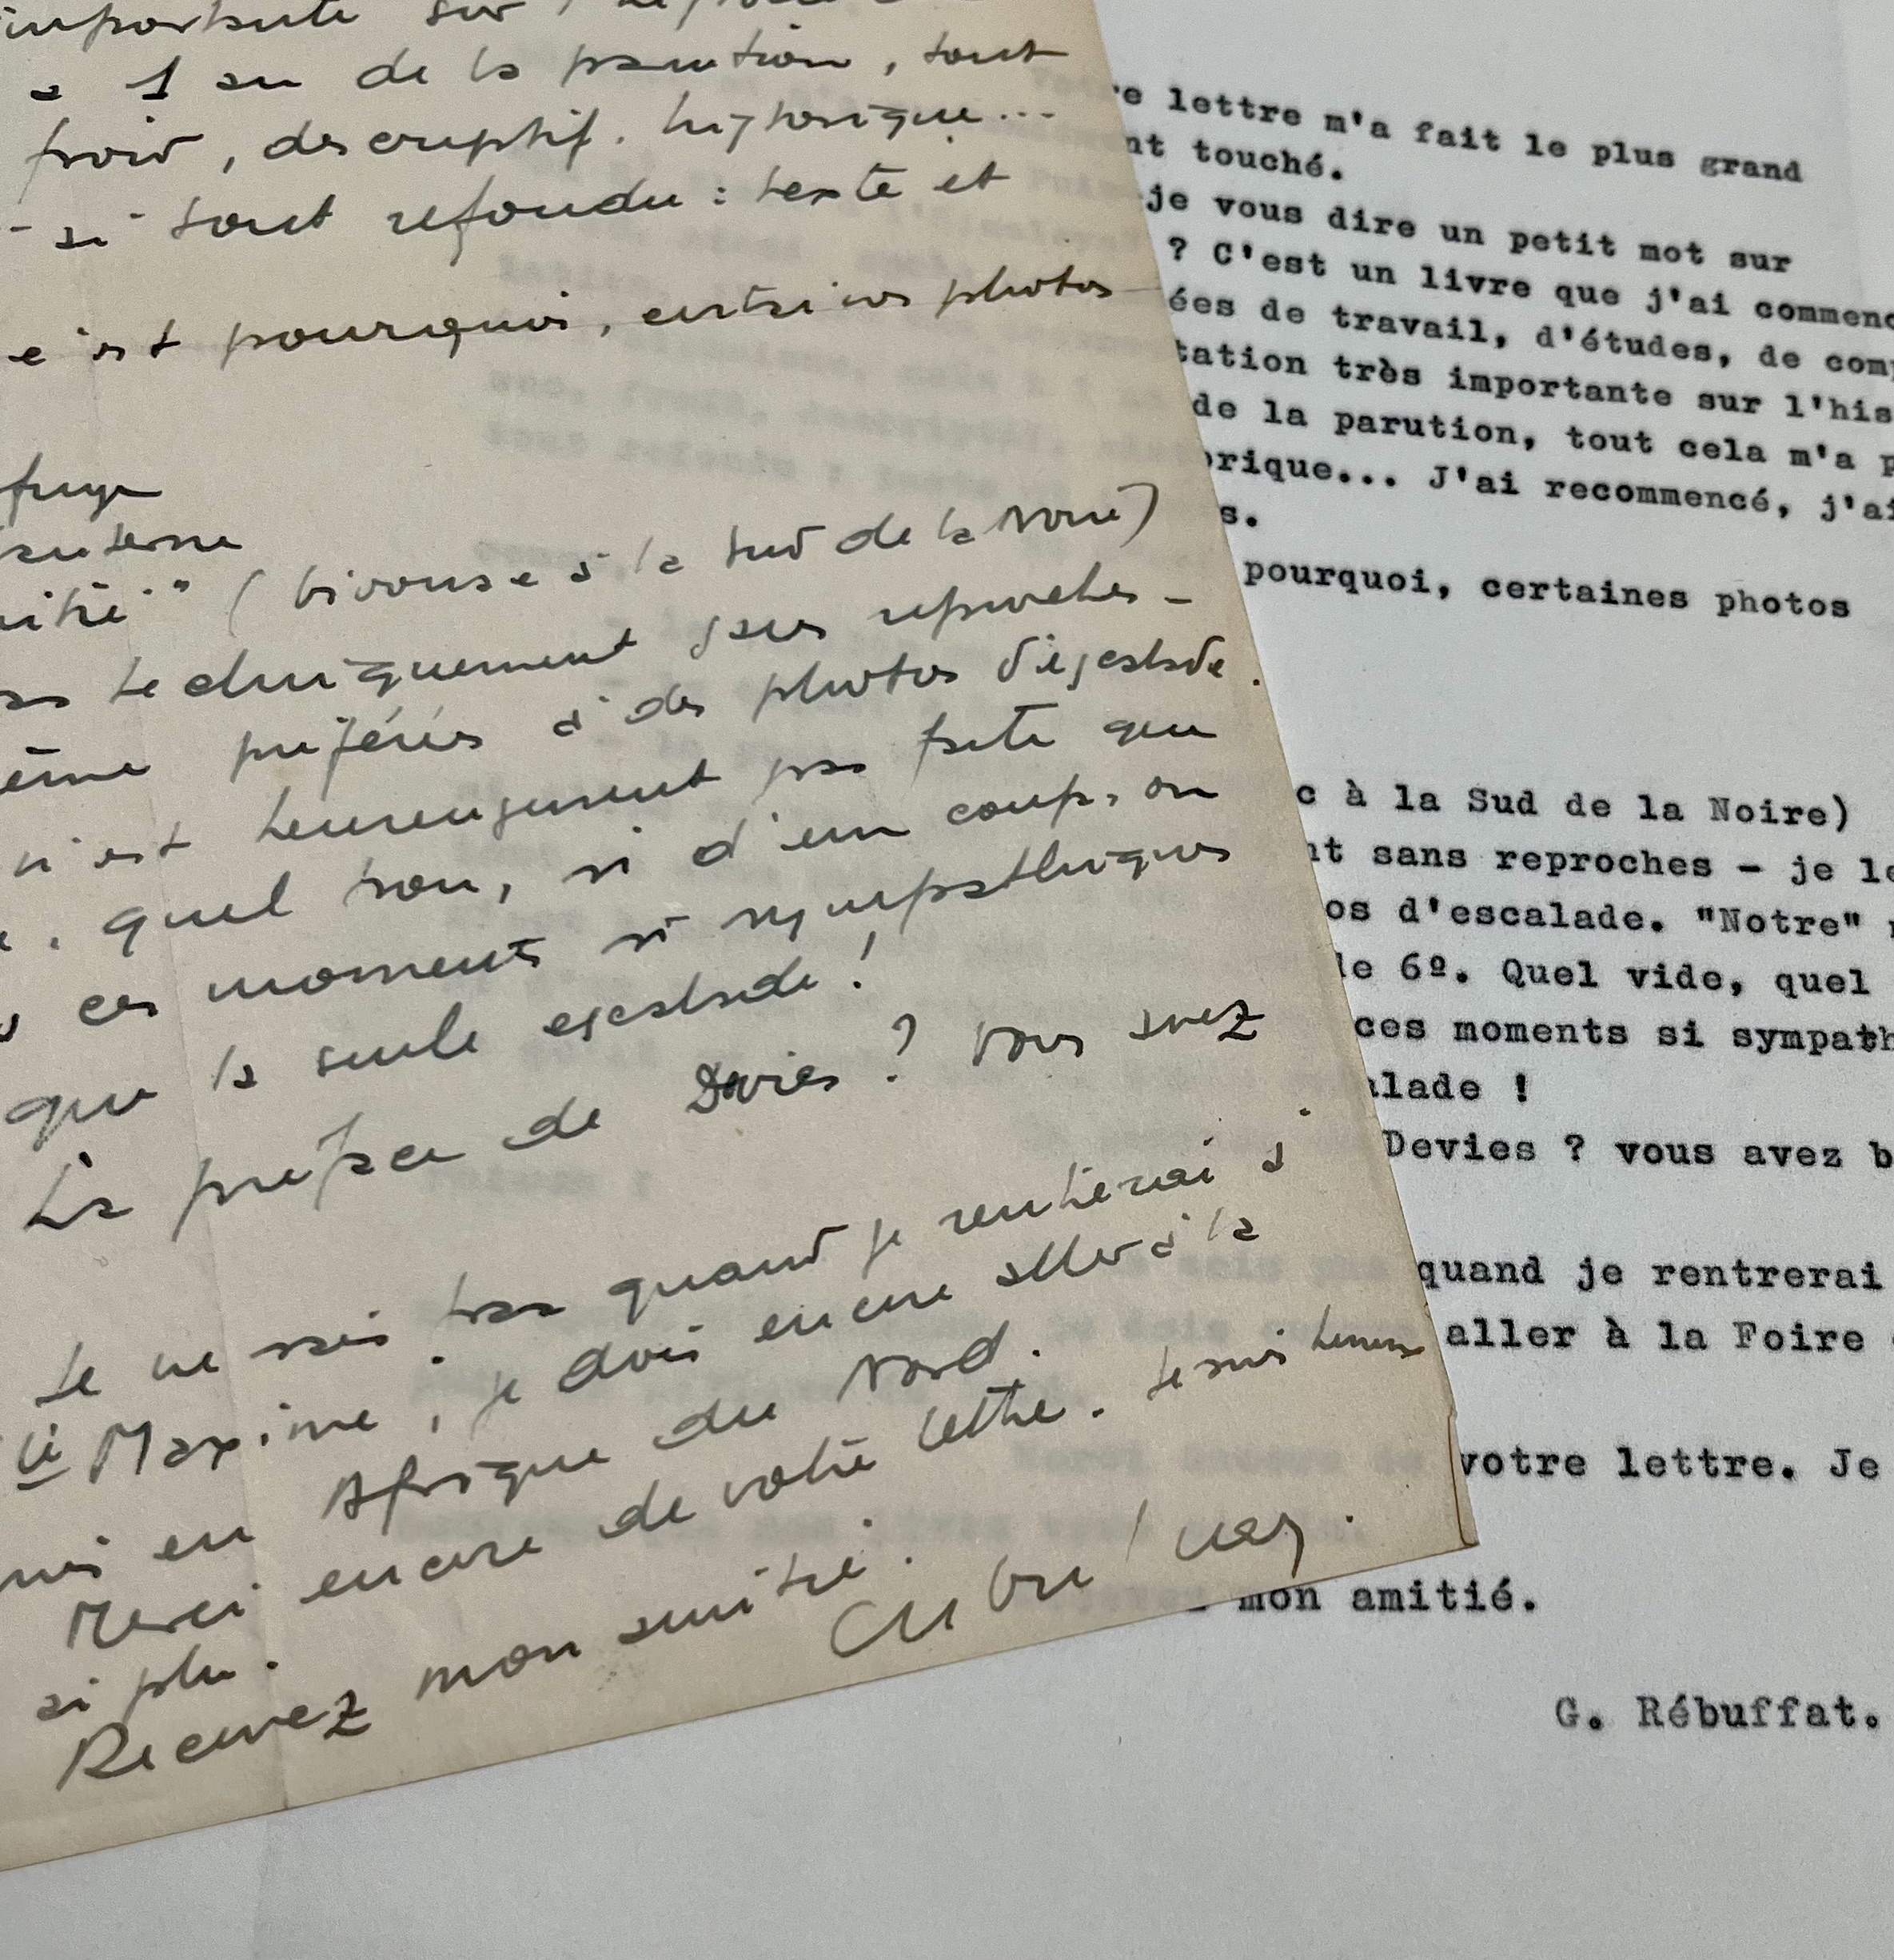 importante sur l'
à 1 an de la parution, tout
froid, descriptif, historique...
ai tout refondu : texte et
c'est pourquoi, certaines photos
fuge
lanterne
itié" (bivouac à la Sud de la Noire)
techniquement sans reproches -
ême préférées à des photos d'escalade.
n'est heureusement pas faite que
quel trou, si d'un coup, on
ces moments si sympathiques
que la seule escalade !
La préface de Devies ? Vous avez
Je ne sais pas quand je rentrerai à
Ste Maxime, je dois encore aller à la
en Afrique du Nord.
Merci encore de votre lettre. Je suis heureux
ai plu.
Recevez mon amitié.
re lettre m'a fait le plus grand
nt touché.
je vous dire un petit mot sur
? C'est un livre que j'ai commenc
ées de travail, d'études, de com
tation très importante sur l'his
de la parution, tout cela m'a p
orique... J'ai recommencé, j'ai
s.
pourquoi, certaines photos
c à la Sud de la Noire)
nt sans reproches - je le
os d'escalade. "Notre"
de 6º. Quel vide, quel
ces moments si sympath
alade !
Devies ? vous avez b
quand je rentrerai
aller à la Foire
votre lettre. Je
mon amitié.
G. Rébuffat.